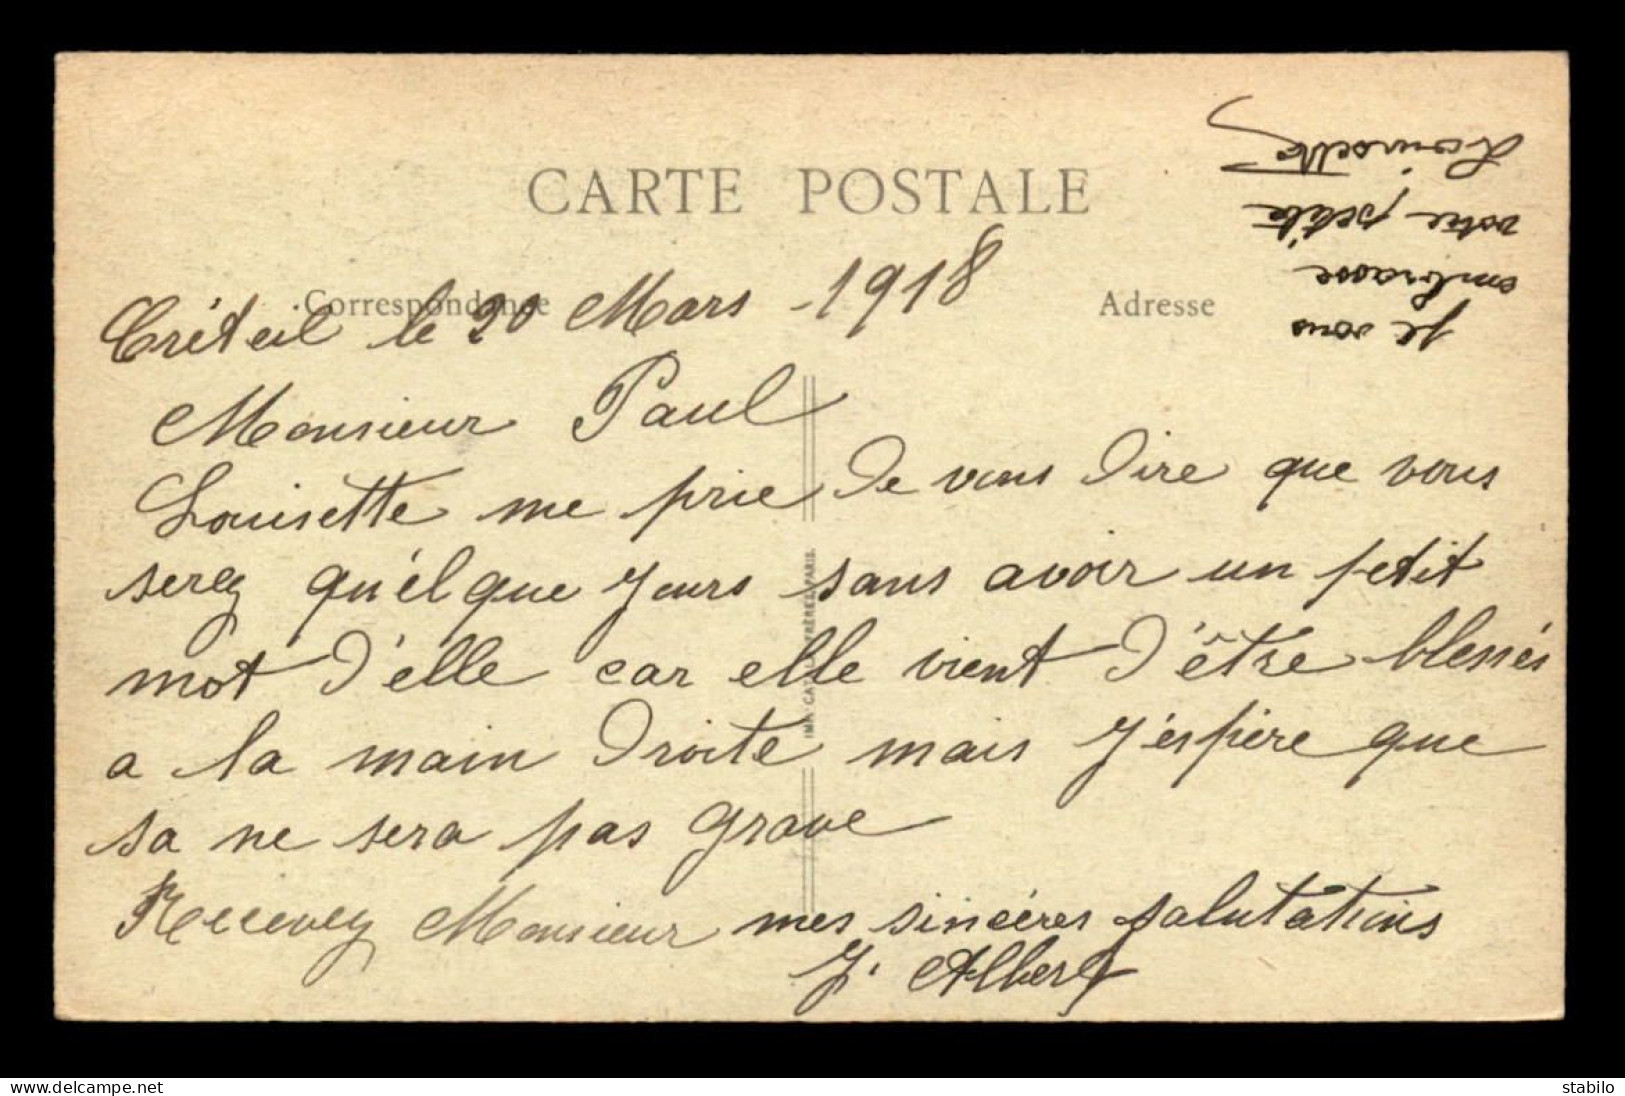 CARTE POSTALE
Correspondance
Adresse
Créteil le 20 Mars - 1918
Monsieur Paul
Louisette me prie de vous dire que vous
serez qu'élque Jours sans avoir un petit
mot d'elle car elle vient d'être blessés
a la main droite mais J'éspère que
sa ne sera pas grave
Recevez Monsieur mes sincères salutations
J. Albert
Je vous
embrasse
votre petite
Louisette
FRÈRES, PARIS.
delcampe.net
stabilo